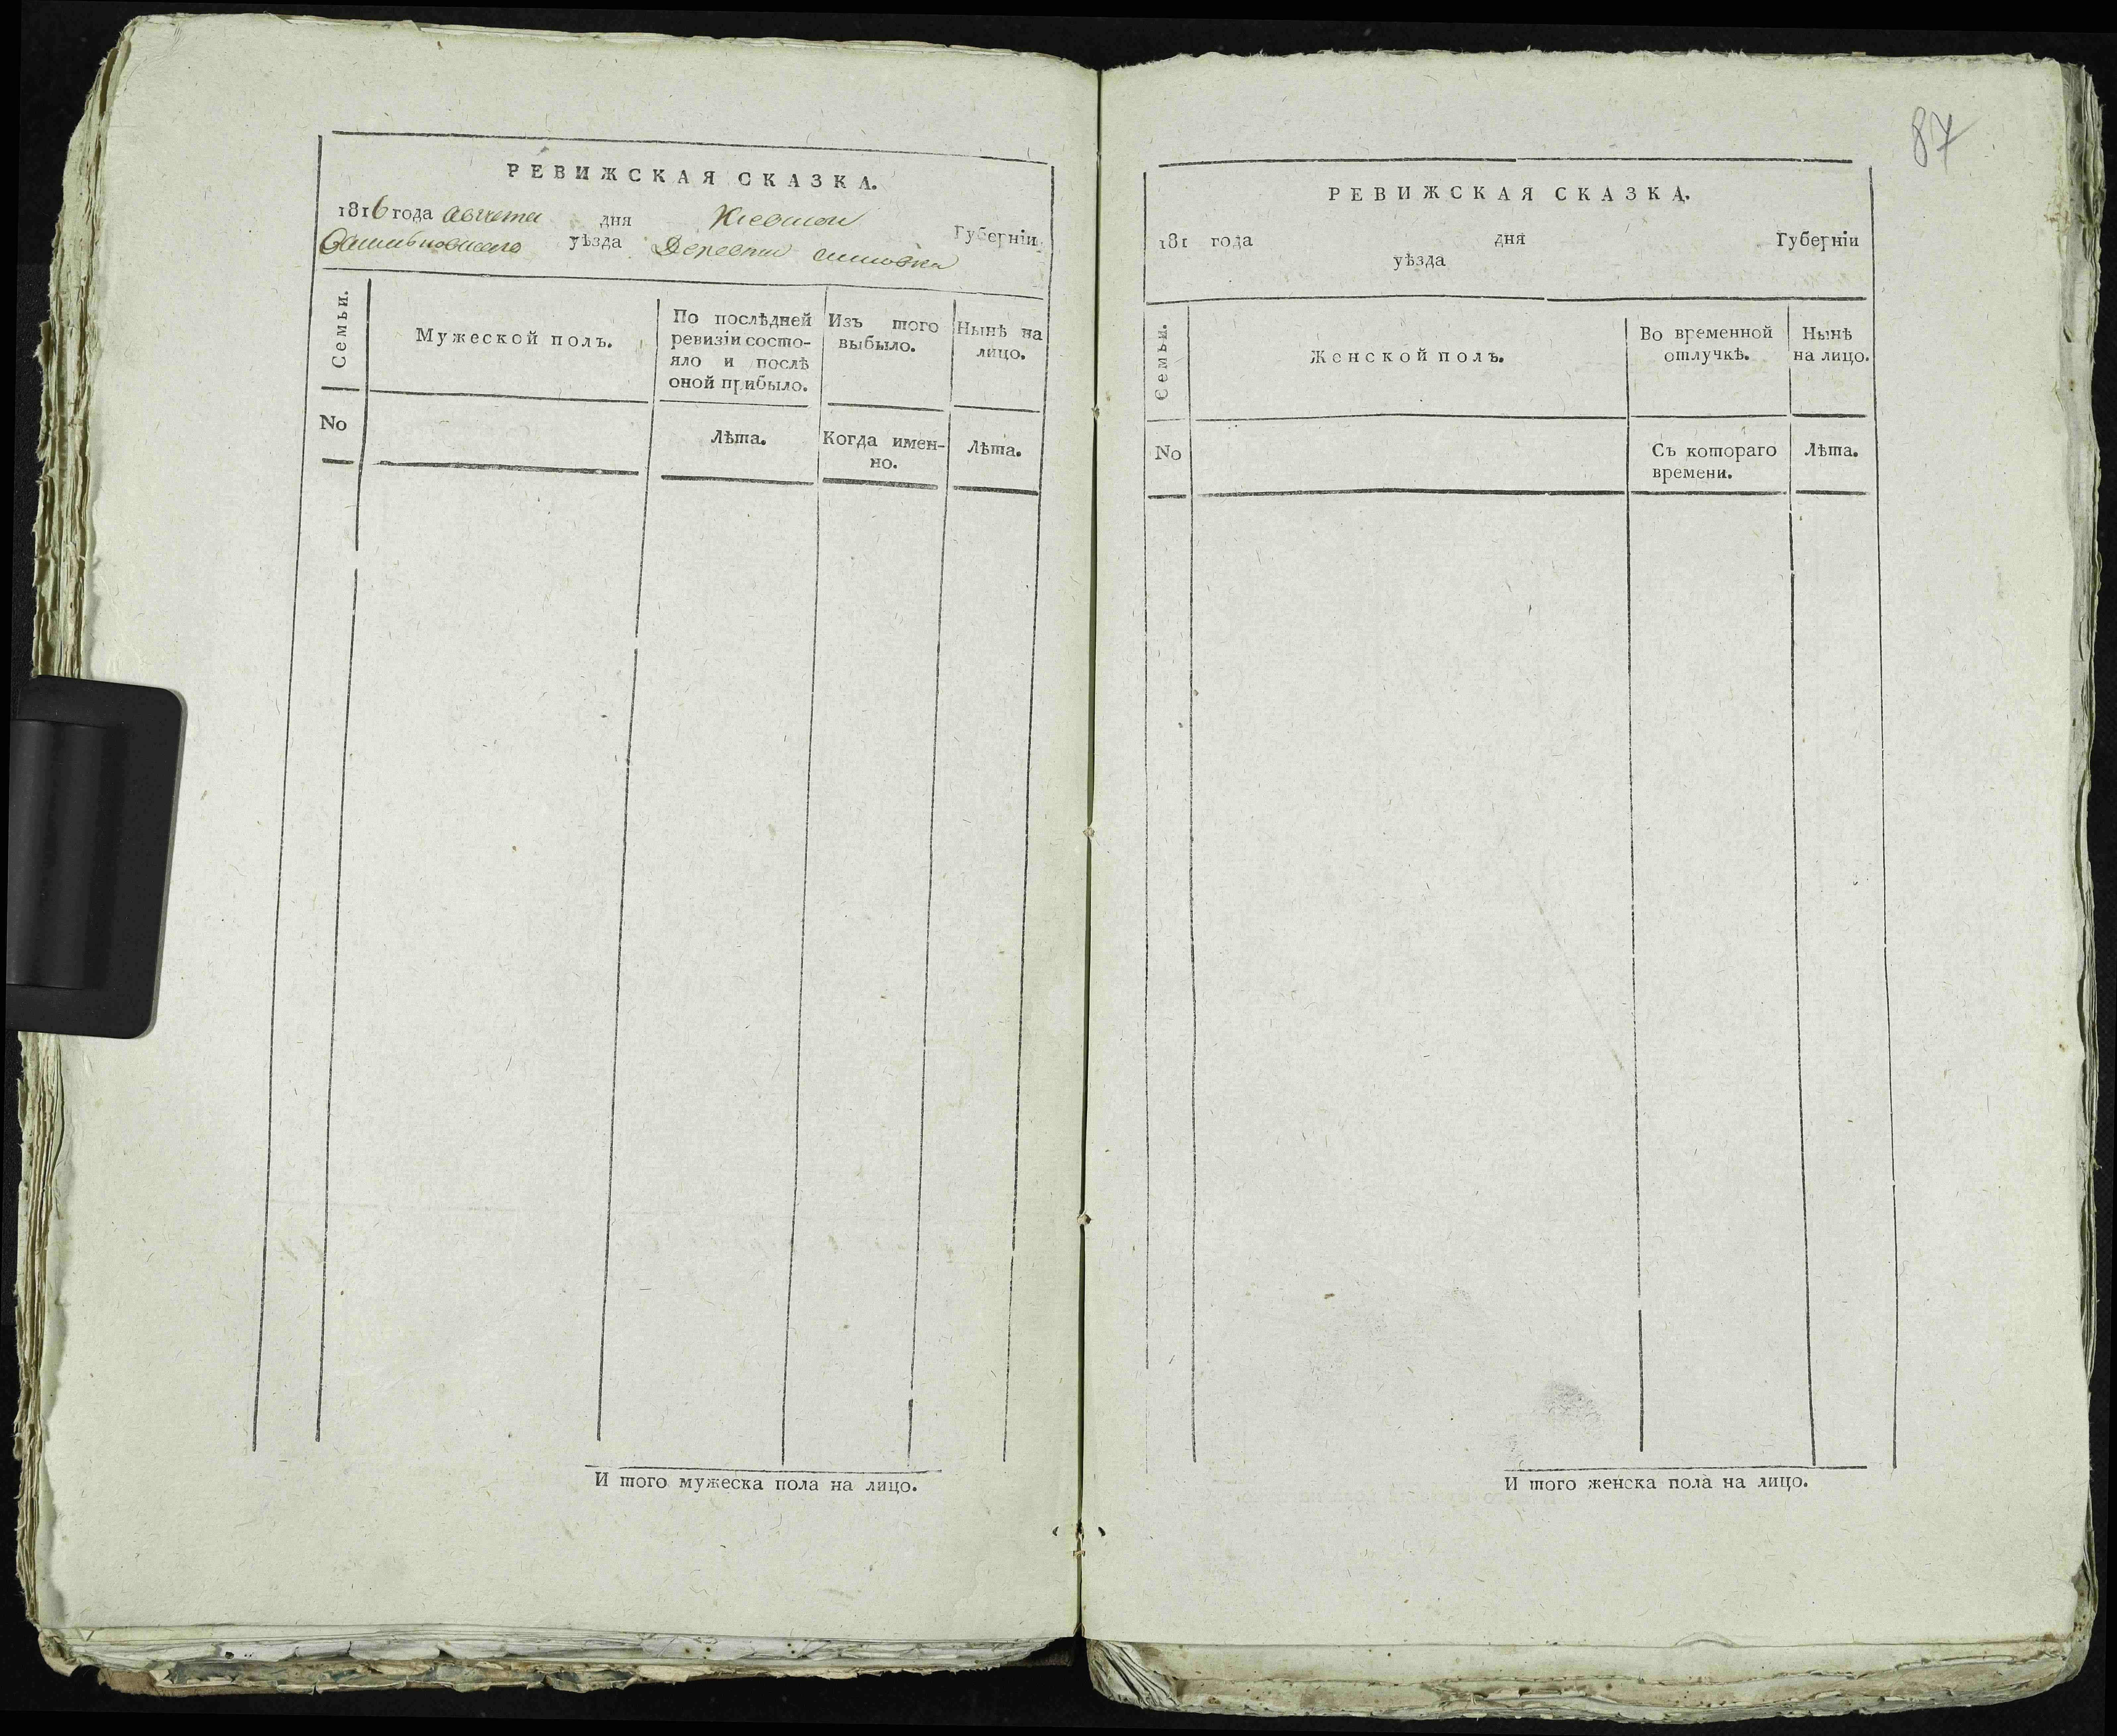 РЕВИЖСКАЯ СКАЗКА.
1816 года Августа дня Киевской Губерніи
уѣзда Деревни
Семьи.
Мужеской полъ.
По послѣдней ревизіи состо-
яло и послѣ
оной прибыло.
Изъ того
выбыло.
Нынѣ на
лицо.
No
Лѣта.
Когда имен-
но.
Лѣта.
И того мужеска пола на лицо.
87
РЕВИЖСКАЯ СКАЗКА.
181 года дня Губерніи
уѣзда
Семьи.
Женской полъ.
Во временной
отлучкѣ.
Нынѣ
на лицо.
No
Съ котораго
времени.
Лѣта.
И того женска пола на лицо.